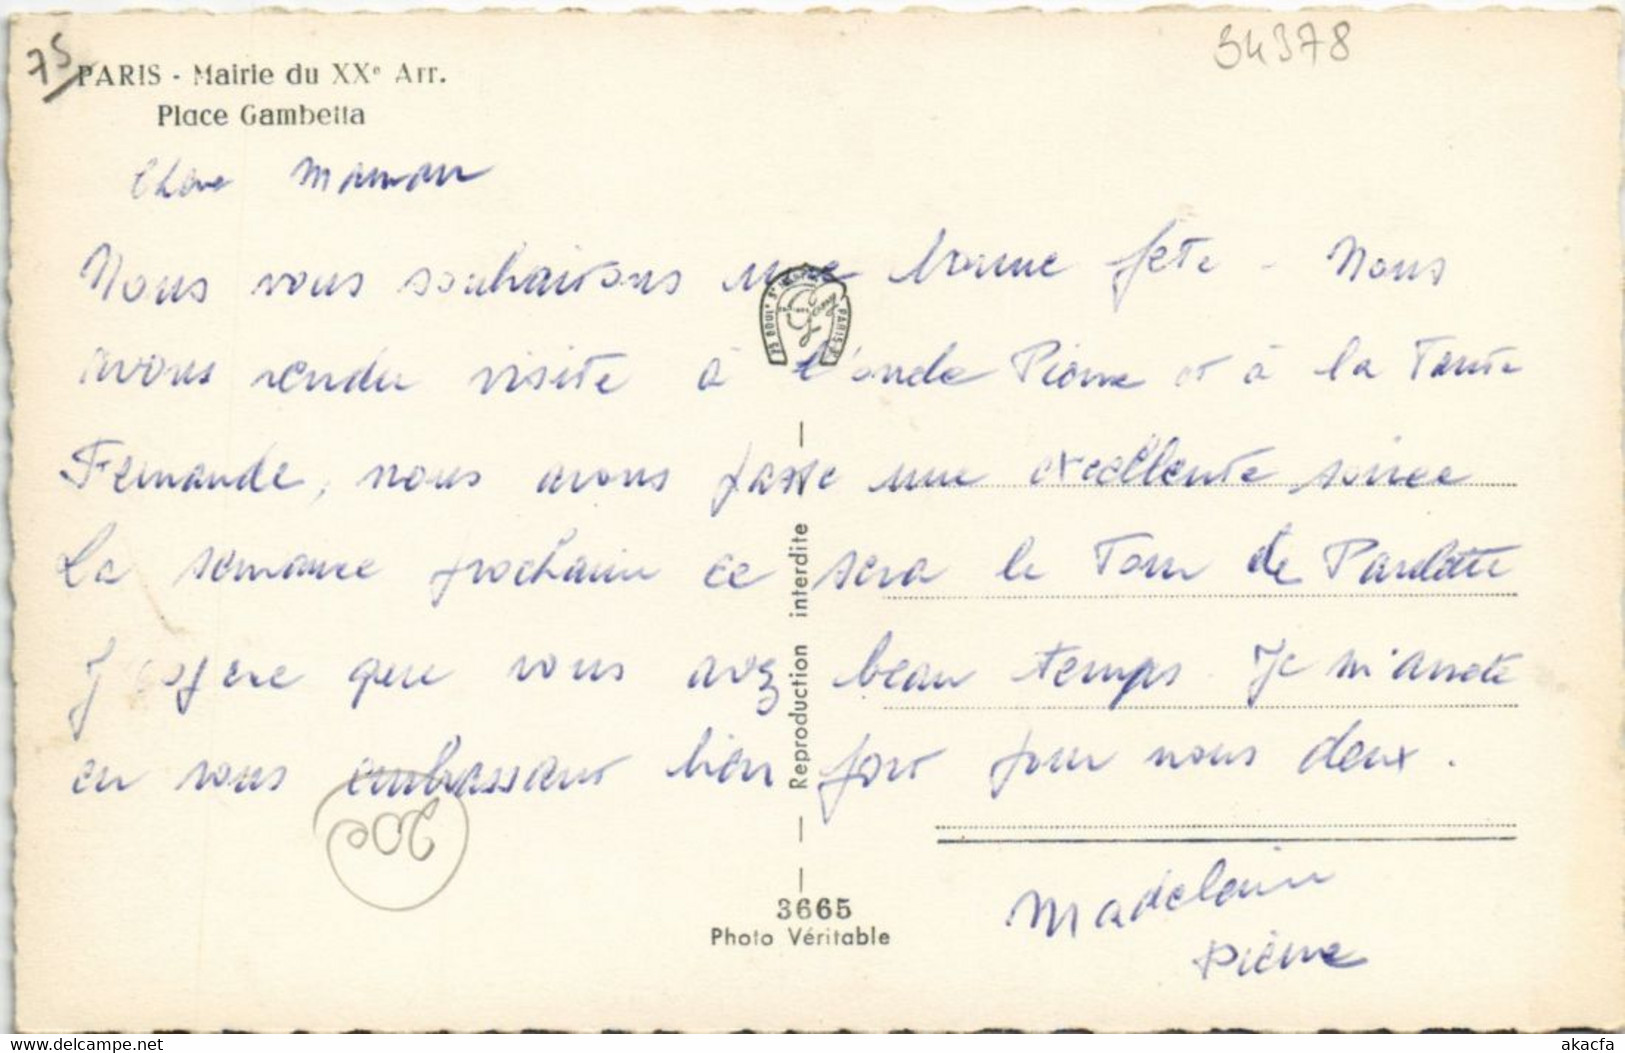 75
34378
PARIS - Mairie du XXe Arr.
Place Gambetta
Chère Maman
Nous vous souhaitons une bonne fête - Nous
avons rendu visite à l'oncle Pierre et à la Tante
Fernande, nous avons passé une excellente soirée
La semaine prochaine ce sera le Tour de Paulette
J'espère que vous avez beau temps. Je m'arrete
en vous embrassant bien fort pour nous deux.
20e
Reproduction interdite
3665
Photo Véritable
Madeleine
Pierre
www.delcampe.net
akacfa